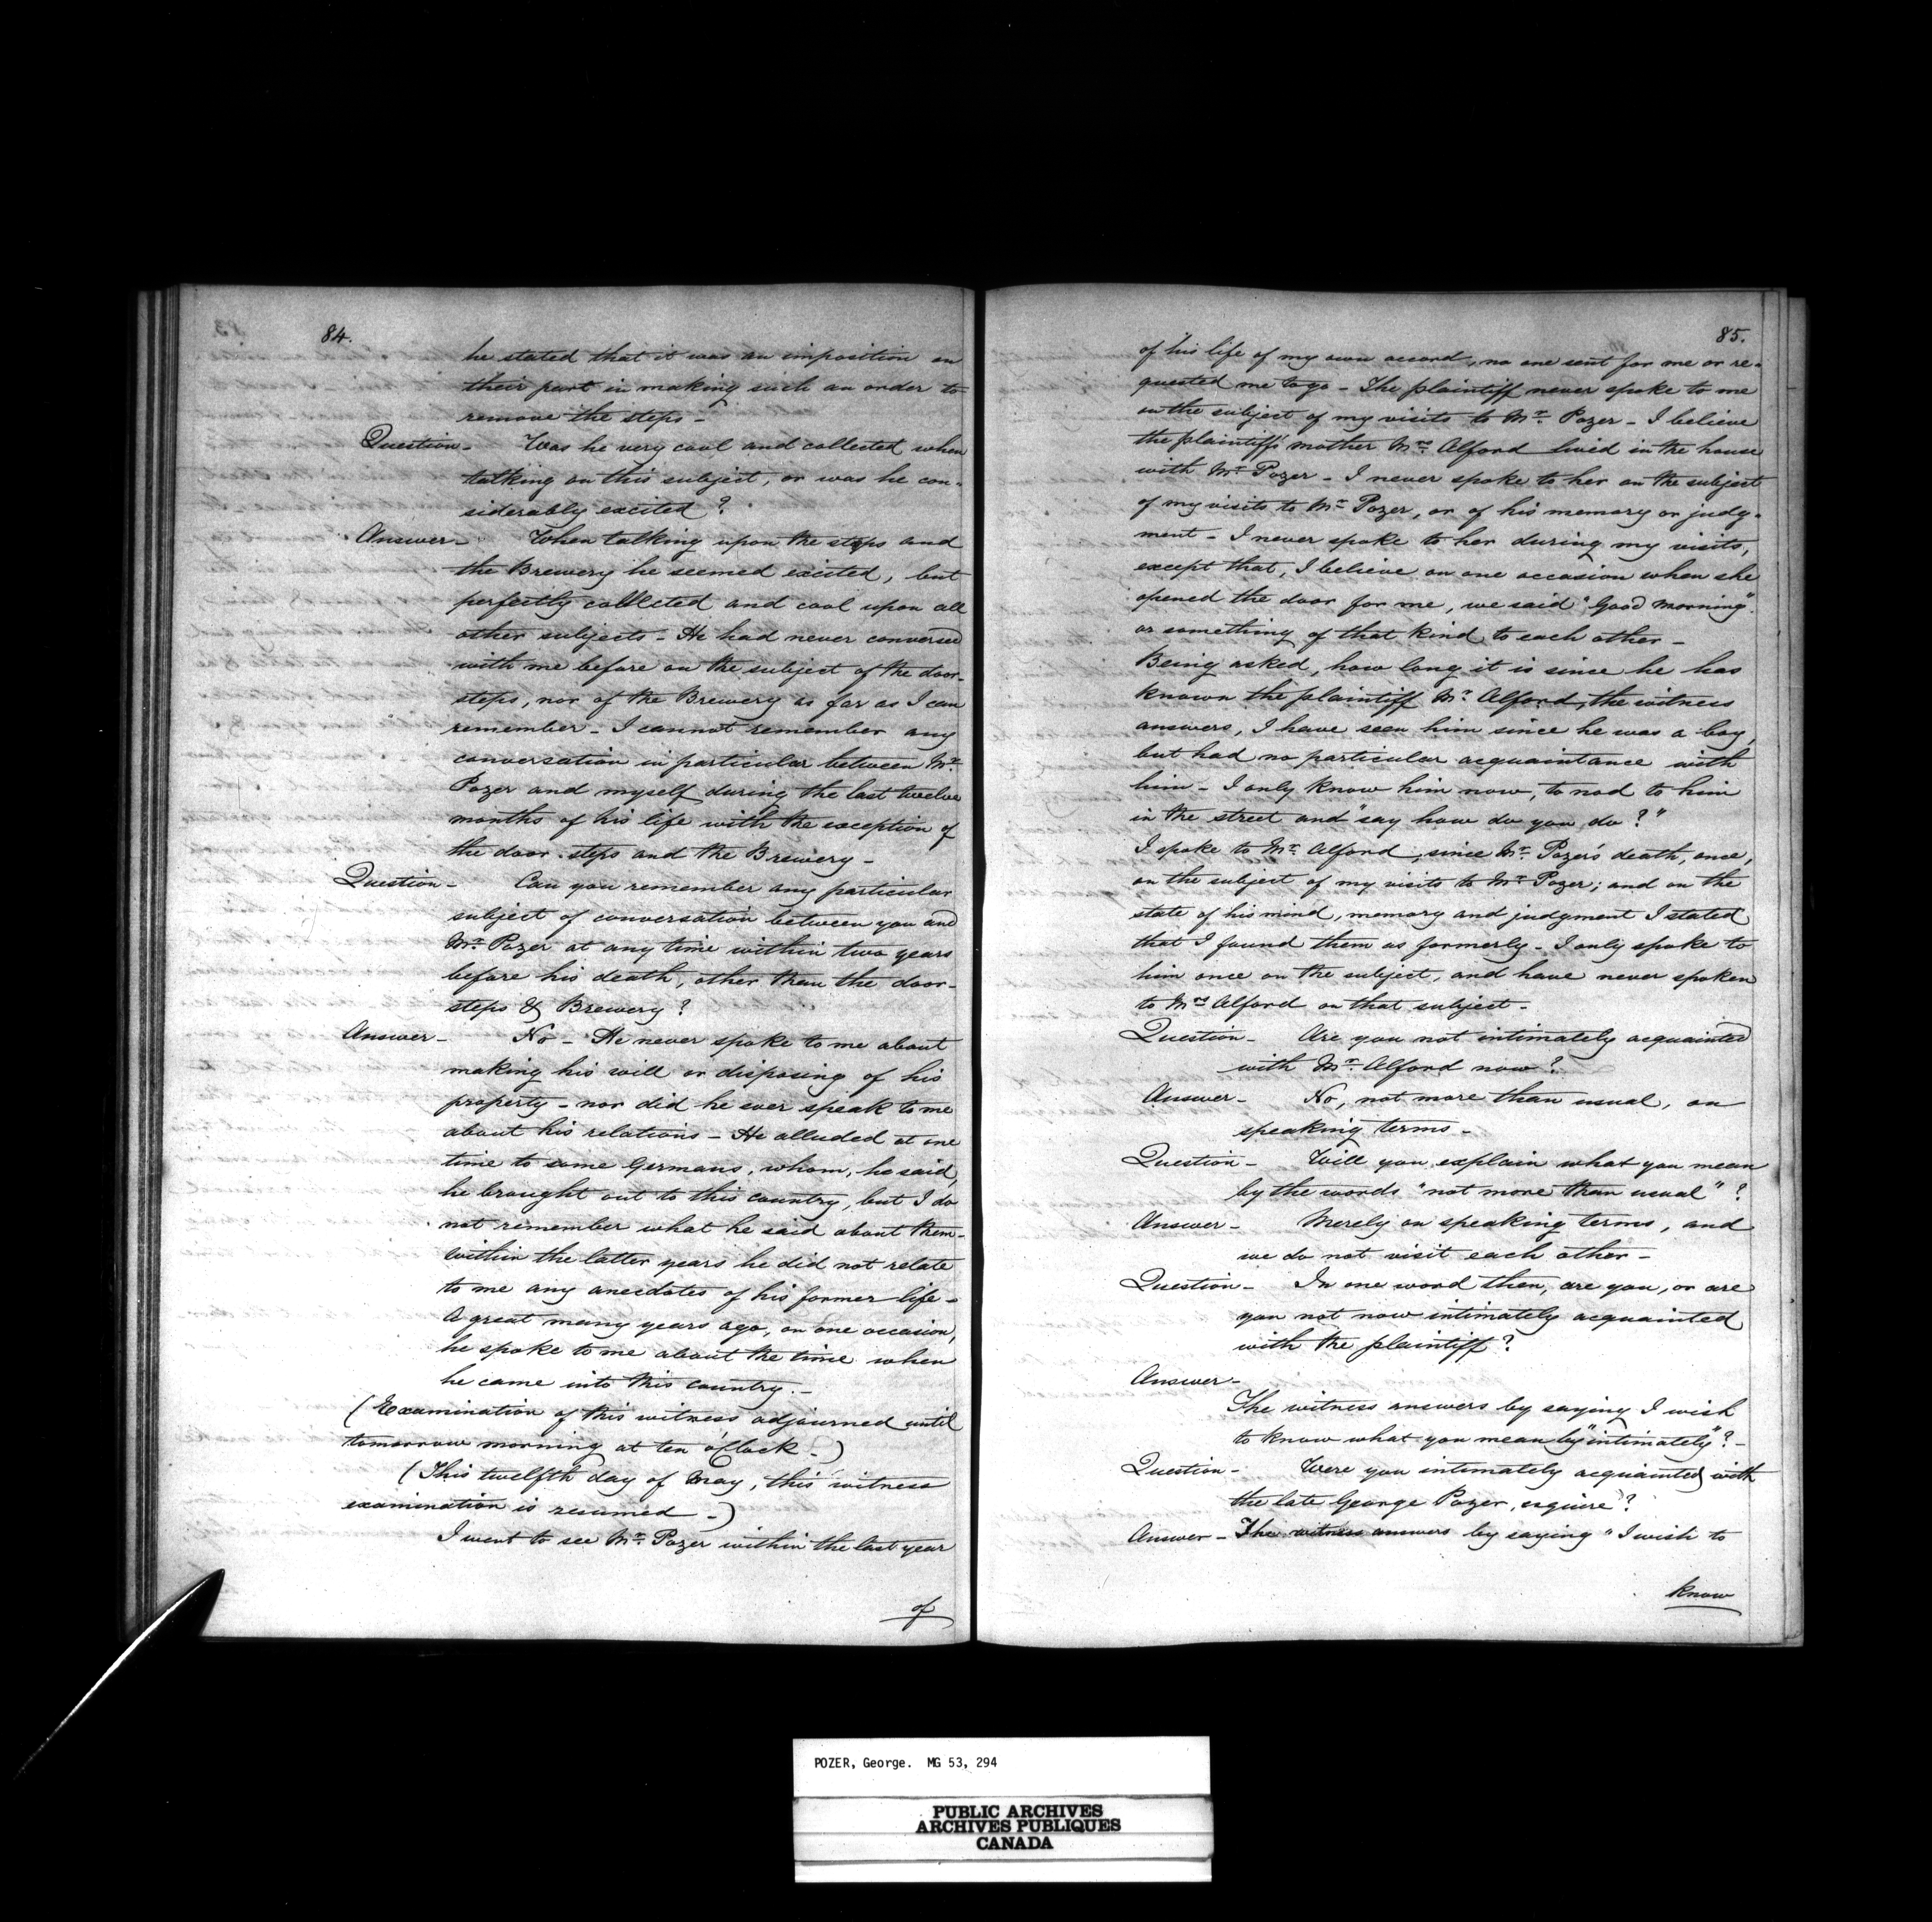 84.
he stated that it was an imposition on
their part in making such an order to
remove the steps -
Question - Was he very cool and collected when
talking on this subject, or was he con-
siderably excited?
Answer - When talking upon the steps and
the Brewery he seemed excited, but
perfectly collected and cool upon all
other subjects - He had never conversed
with me before on the subject of the door-
steps, nor of the Brewery as far as I can
remember - I cannot remember any
conversation in particular between Mr.
Pozer and myself during the last twelve
months of his life with the exception of
the door steps and the Brewery -
Question - Can you remember any particular
subject of conversation between you and
Mr. Pozer at any time within two years
before his death, other than the door-
steps & Brewery?
Answer - No - He never spoke to me about
making his will or disposing of his
property - nor did he ever speak to me
about his relations - He alluded at one
time to some Germans, whom, he said,
he brought out to this country, but I do
not remember what he said about them -
Within the latter years he did not relate
to me any anecdotes of his former life -
A great many years ago, on one occasion,
he spoke to me about the time when
he came into this country. -
(Examination of this witness adjourned until
tomorrow morning at ten o'Clock -)
(This twelfth day of May, this witness
examination is resumed -)
I went to see Mr. Pozer within the last year
of
85.
of his life of my own accord, no one sent for me or re-
quested me to go - The plaintiff never spoke to me
on the subject of my visits to Mr. Pozer - I believe
the plaintiff's mother Mrs. Alford lived in the house
with Mr. Pozer - I never spoke to her on the subject
of my visits to Mr. Pozer, or of his memory or judg-
ment - I never spoke to her during my visits,
except that, I believe on one occasion when she
opened the door for me, we said "Good morning"
or something of that kind to each other -
Being asked, how long it is since he has
known the plaintiff Mr. Alford, the witness
answers, I have seen him since he was a boy,
but had no particular acquaintance with
him - I only know him now, to nod to him
in the street and "say how do you do?"
I spoke to Mr. Alford, since Mr. Pozer's death, once,
on the subject of my visits to Mr. Pozer; and on the
state of his mind, memory and judgment I stated
that I found them as formerly - I only spoke to
him once on the subject, and have never spoken
to Mrs. Alford on that subject -
Question - Are you not intimately acquainted
with Mr. Alford now?
Answer - No, not more than usual, on
speaking terms -
Question - Will you explain what you mean
by the words "not more than usual"?
Answer - Merely on speaking terms, and
we do not visit each other -
Question - In one word then, are you, or are
you not now intimately acquainted
with the plaintiff?
Answer -
The witness answers by saying I wish
to know what you mean by "intimately"? -
Question - Were you intimately acquainted with
the late George Pozer, esquire?
Answer - The witness answers by saying "I wish to
know
POZER, George. MG 53, 294
PUBLIC ARCHIVES
ARCHIVES PUBLIQUES
CANADA